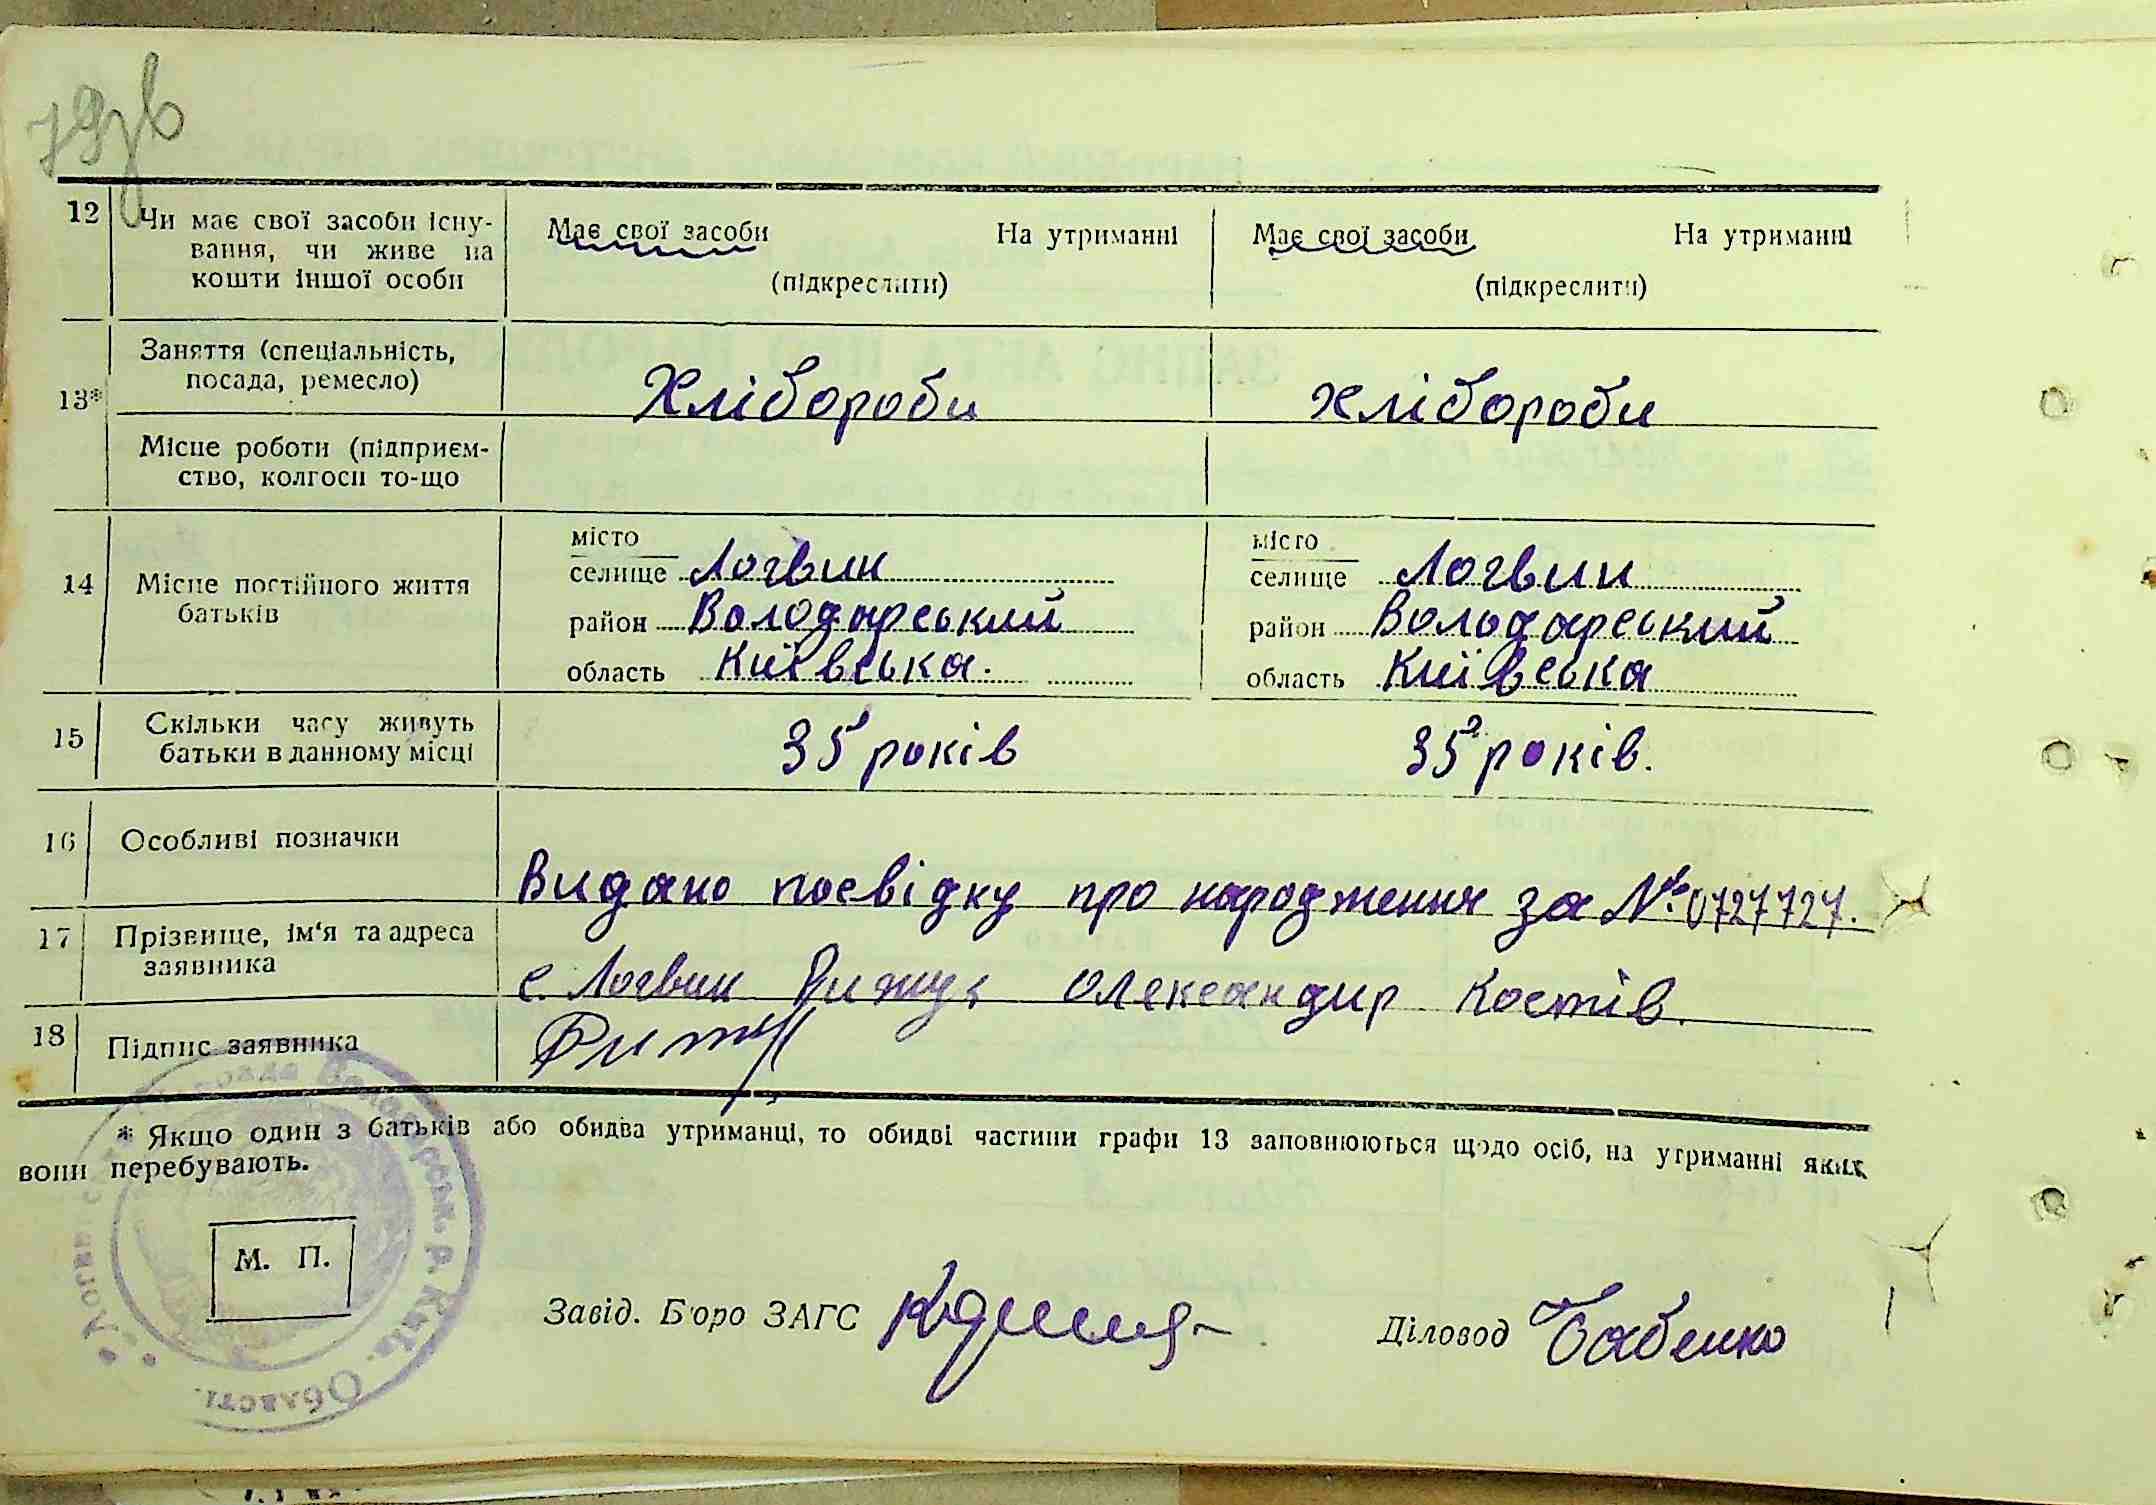 12 Чи має свої засоби існу-
вання, чи живе на
кошти іншої особи
Має свої засоби На утриманні
(підкреслити)
Має свої засоби На утриманні
(підкреслити)
13* Заняття (спеціальність,
посада, ремесло)
Хлібороби
хлібороби
Місце роботи (підприєм-
ство, колгосп то-що
14 Місце постійного життя
батьків
місто
селище Логвин
район Володарський
область Київська.
місто
селище Логвин
район Володарський
область Київська
15 Скільки часу живуть
батьки в данному місці
35 років
35 років.
16 Особливі позначки
Видано посвідку про народження за №: 0727727.
17 Прізвище, ім'я та адреса
заявника
с. Логвин Рижук Олександир Костів.
18 Підпис заявника
* Якщо один з батьків або обидва утриманці, то обидві частини графи 13 заповнюються щодо осіб, на утриманні яких
вони перебувають.
М. П.
Завід. Б'оро ЗАГС
Діловод Бабенко
Володарськ. р. Київ. Області.